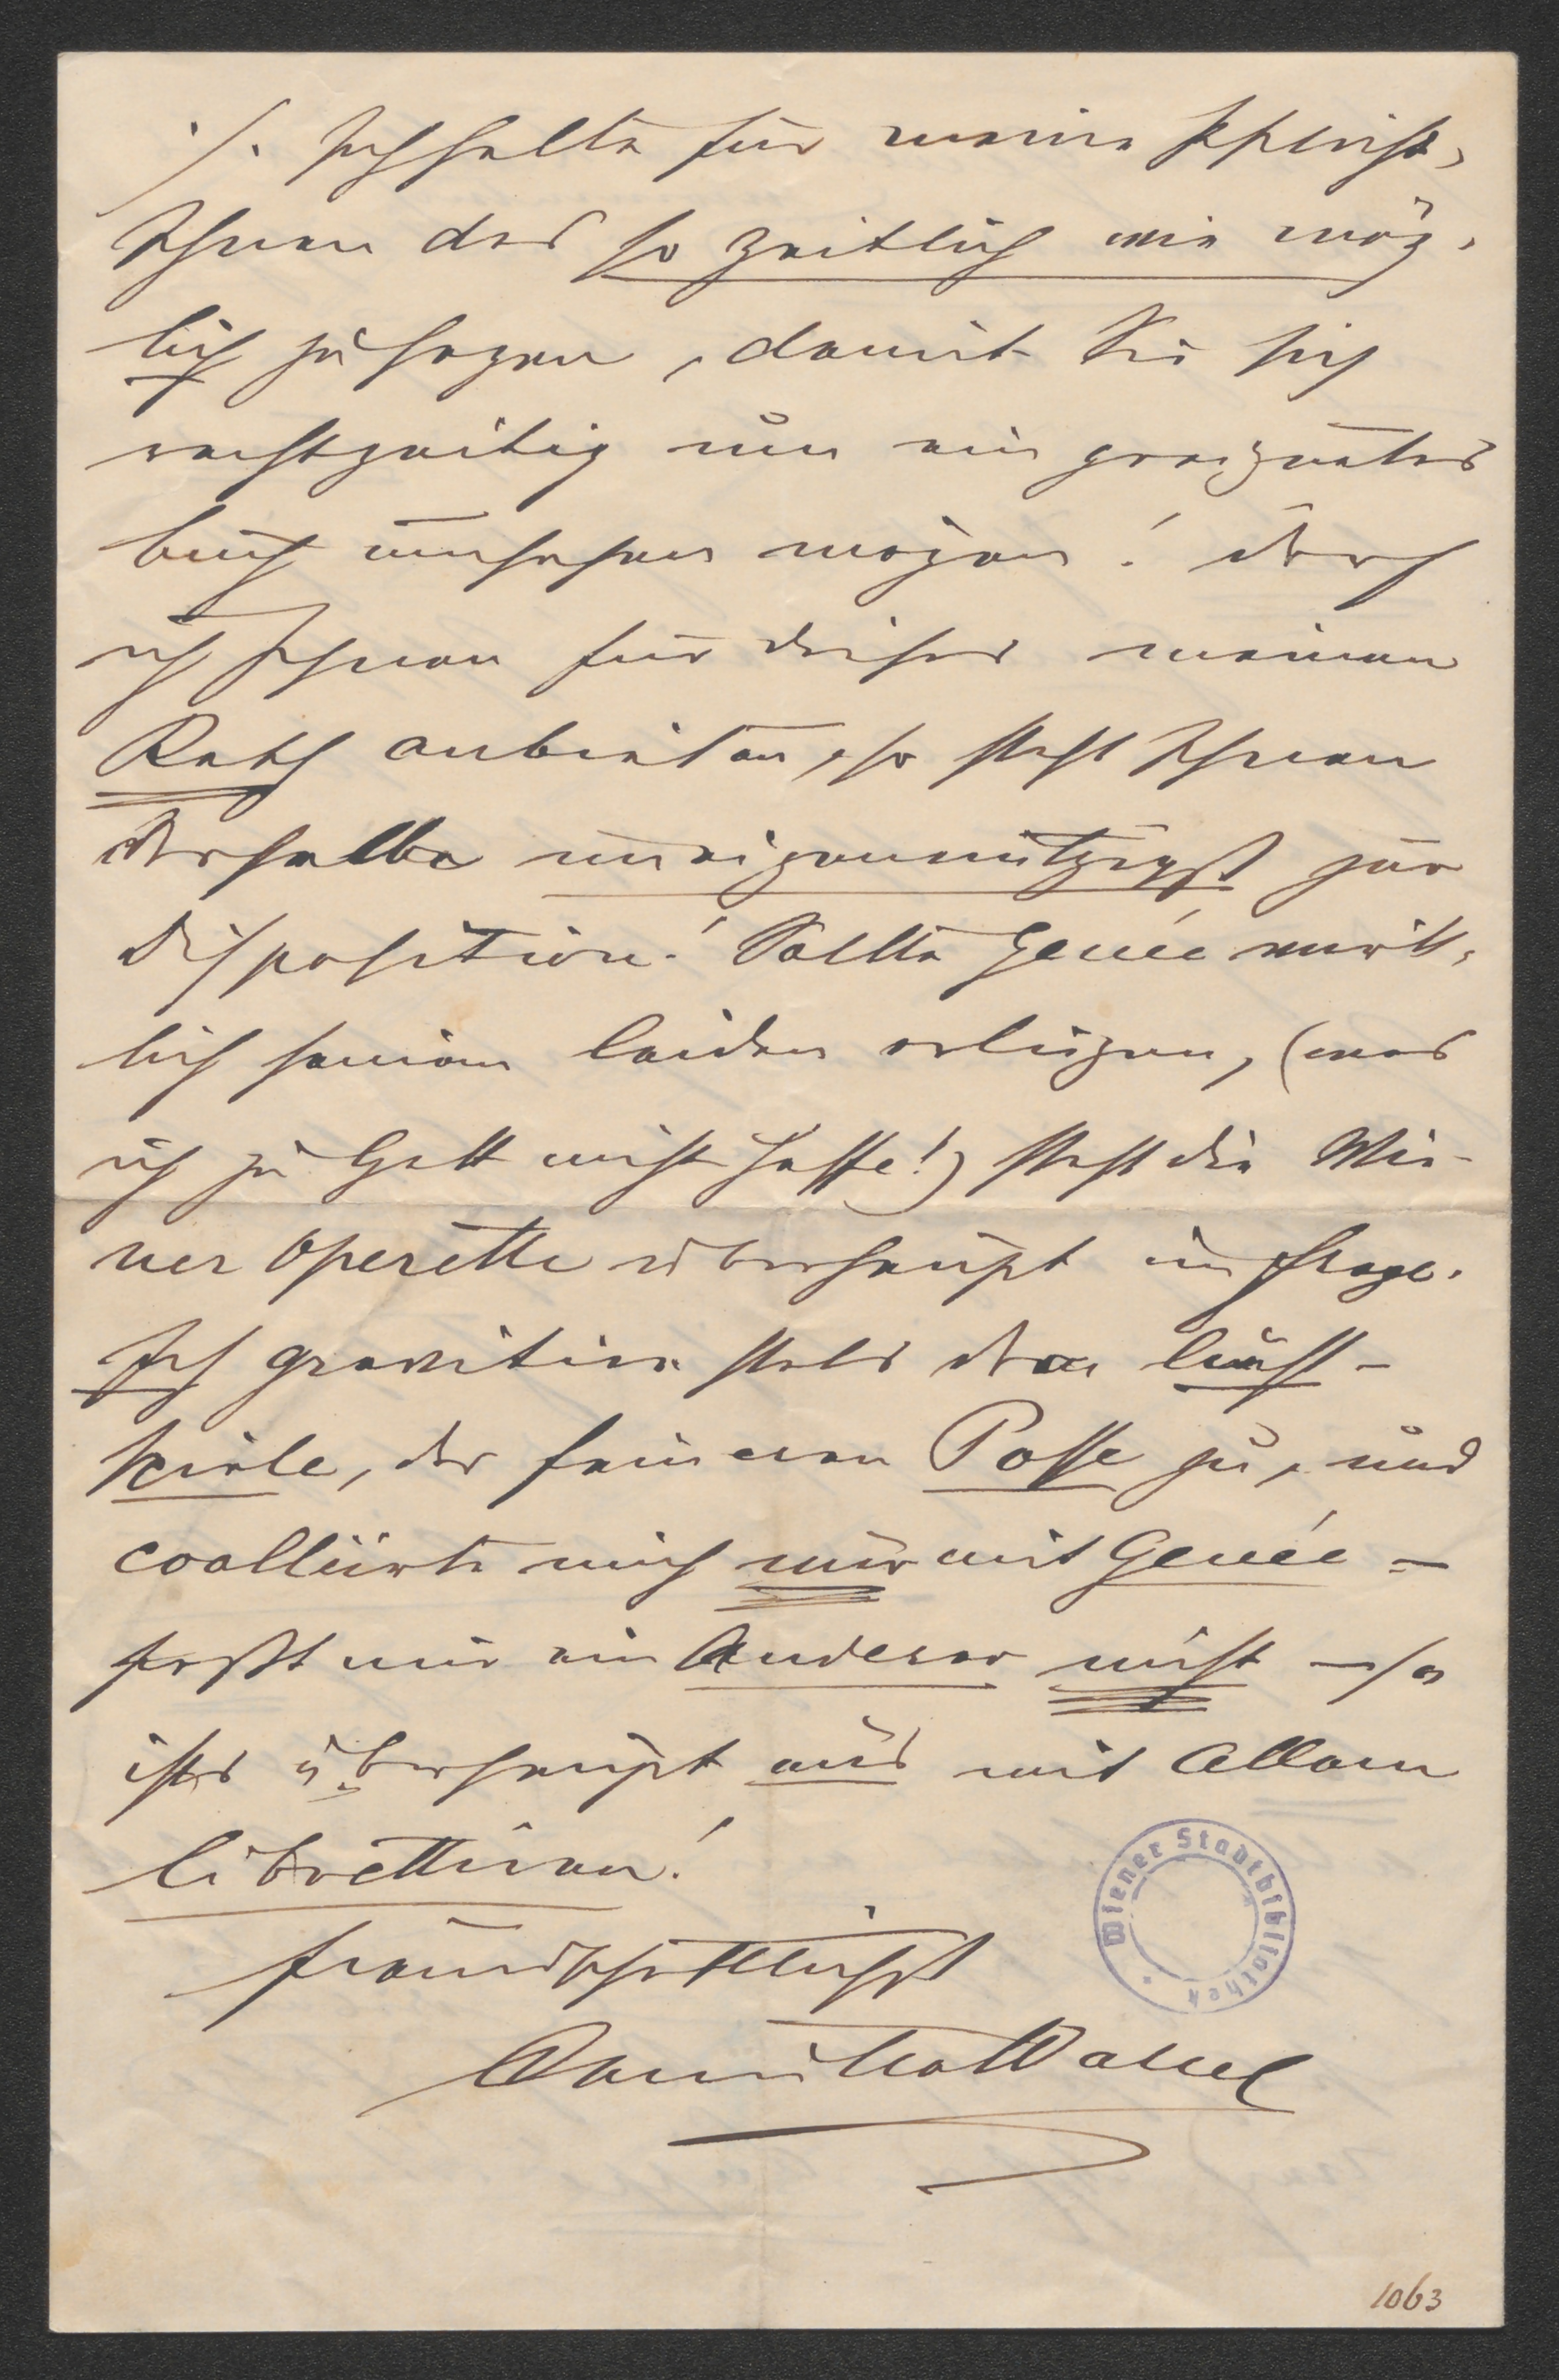 ./. Ich halte für meine Pflicht,
Ihnen das so zeitlich wie mög-
lich zu sagen, damit Sie sich
rechtzeitig um ein geeignetes
Buch umsehen mögen! Darf
ich Ihnen für dieses meinen
Rath anbieten, so steht Ihnen
derselbe uneigennützigst zur
Disposition! Sollte Genée wirk-
lich seinem Leiden erliegen, (was
ich zu Gott nicht hoffe!) steht die Wie-
ner Operette überhaupt in Frage.
Ich gravitire stets dem Lust-
spiele, der feineren Posse zu, und
coalliirte mich nur mit Genée –
paßt mir ein Anderer nicht – so
ists überhaupt aus mit Allem
Librettiren!
freundschaftlichst
Camillo Walzel
Wiener Stadtbibliothek
1063